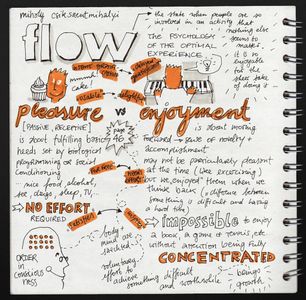 mihaly csikszentmihalyi
flow
the state when people are so
involved in an activity that
nothing else
seems to
matter,
it is so
enjoyable
for the
sake of
doing it
THE PSYCHOLOGY
OF THE OPTIMAL
EXPERIENCE
mmmm!
cake
pleasure vs enjoyment
[PASSIVE, RECEPTIVE]
is about fulfilling basic
needs set by biological
programming or social
conditioning
nice food, alcohol,
sex, drugs, sleep
page
46
is about moving
forward → sense of novelty +
accomplishment
may not be particularly pleasant
at the time (like exercising)
but we enjoyed them when we
think back
something difficult and having
a hard time)
→ NO EFFORT
REQUIRED
impossible to enjoy
a book, a game of tennis, etc.
without attention being fully
CONCENTRATED
ORDER
IN
CONSCIOUS
NESS
body +
mind
are
stretched
voluntary
effort to
achieve
something difficult
and worthwhile
brings
growth